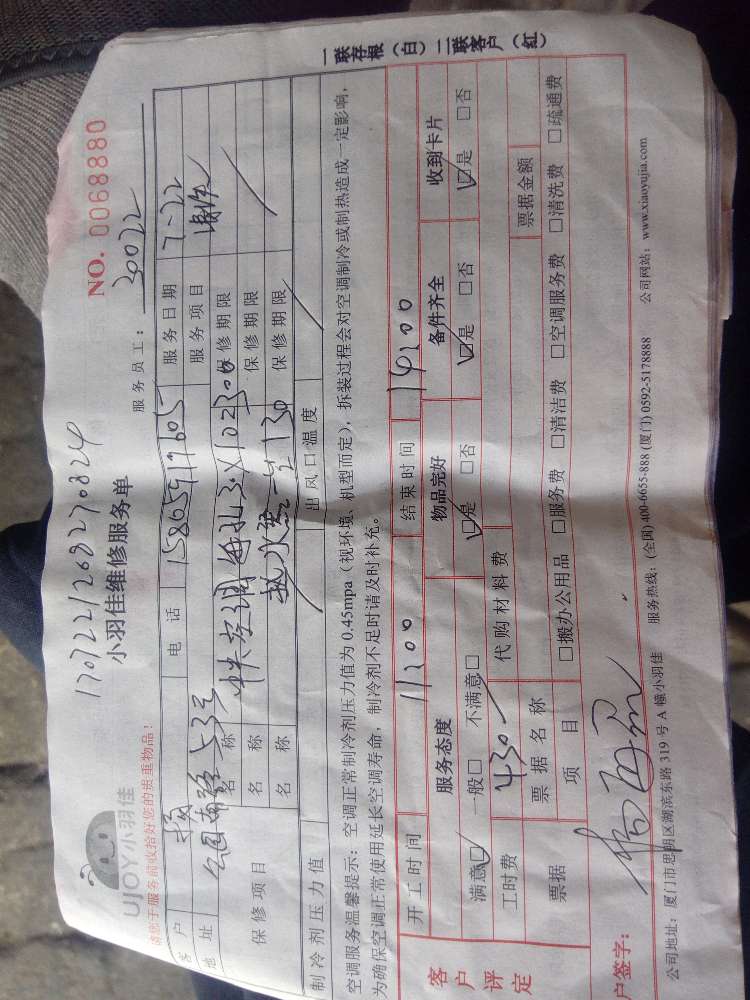 一联存根（白）二联客户（红）
NO. 0068880
17072212608270824
UJOY小羽佳
小羽佳维修服务单
服务员工： 30022
请您于服务前收拾好您的贵重物品！
客户 杨 电话 15865917605 服务日期 7-22
地址 公园南路53号 服务项目
保修项目
名称 中央空调 3×102300 保修期限
名称 热水器一台130 保修期限
名称 保修期限
制冷剂压力值 出风口温度
空调服务温馨提示：空调正常制冷剂压力值为0.45mpa（视环境、机型而定），拆装过程会对空调制冷或制热造成一定影响，
为确保空调正常使用延长空调寿命，制冷剂不足时请及时补充。
客户评定
开工时间 11:00 结束时间 14:00
服务态度 物品完好 备件齐全 收到卡片
满意☑ 一般□ 不满意□ ☑是 □否 ☑是 □否 ☑是 □否
工时费 430 代购材料费
票据 票据名称 票据金额
项目 □搬办公用品 □服务费 □清洁费 □空调服务费 □清洗费 □疏通费
户签字：
公司地址：厦门市思明区湖滨东路319号A幢小羽佳 服务热线：(全国) 400-6655-888 (厦门) 0592-5178888 公司网站：www.xiaoyujia.com